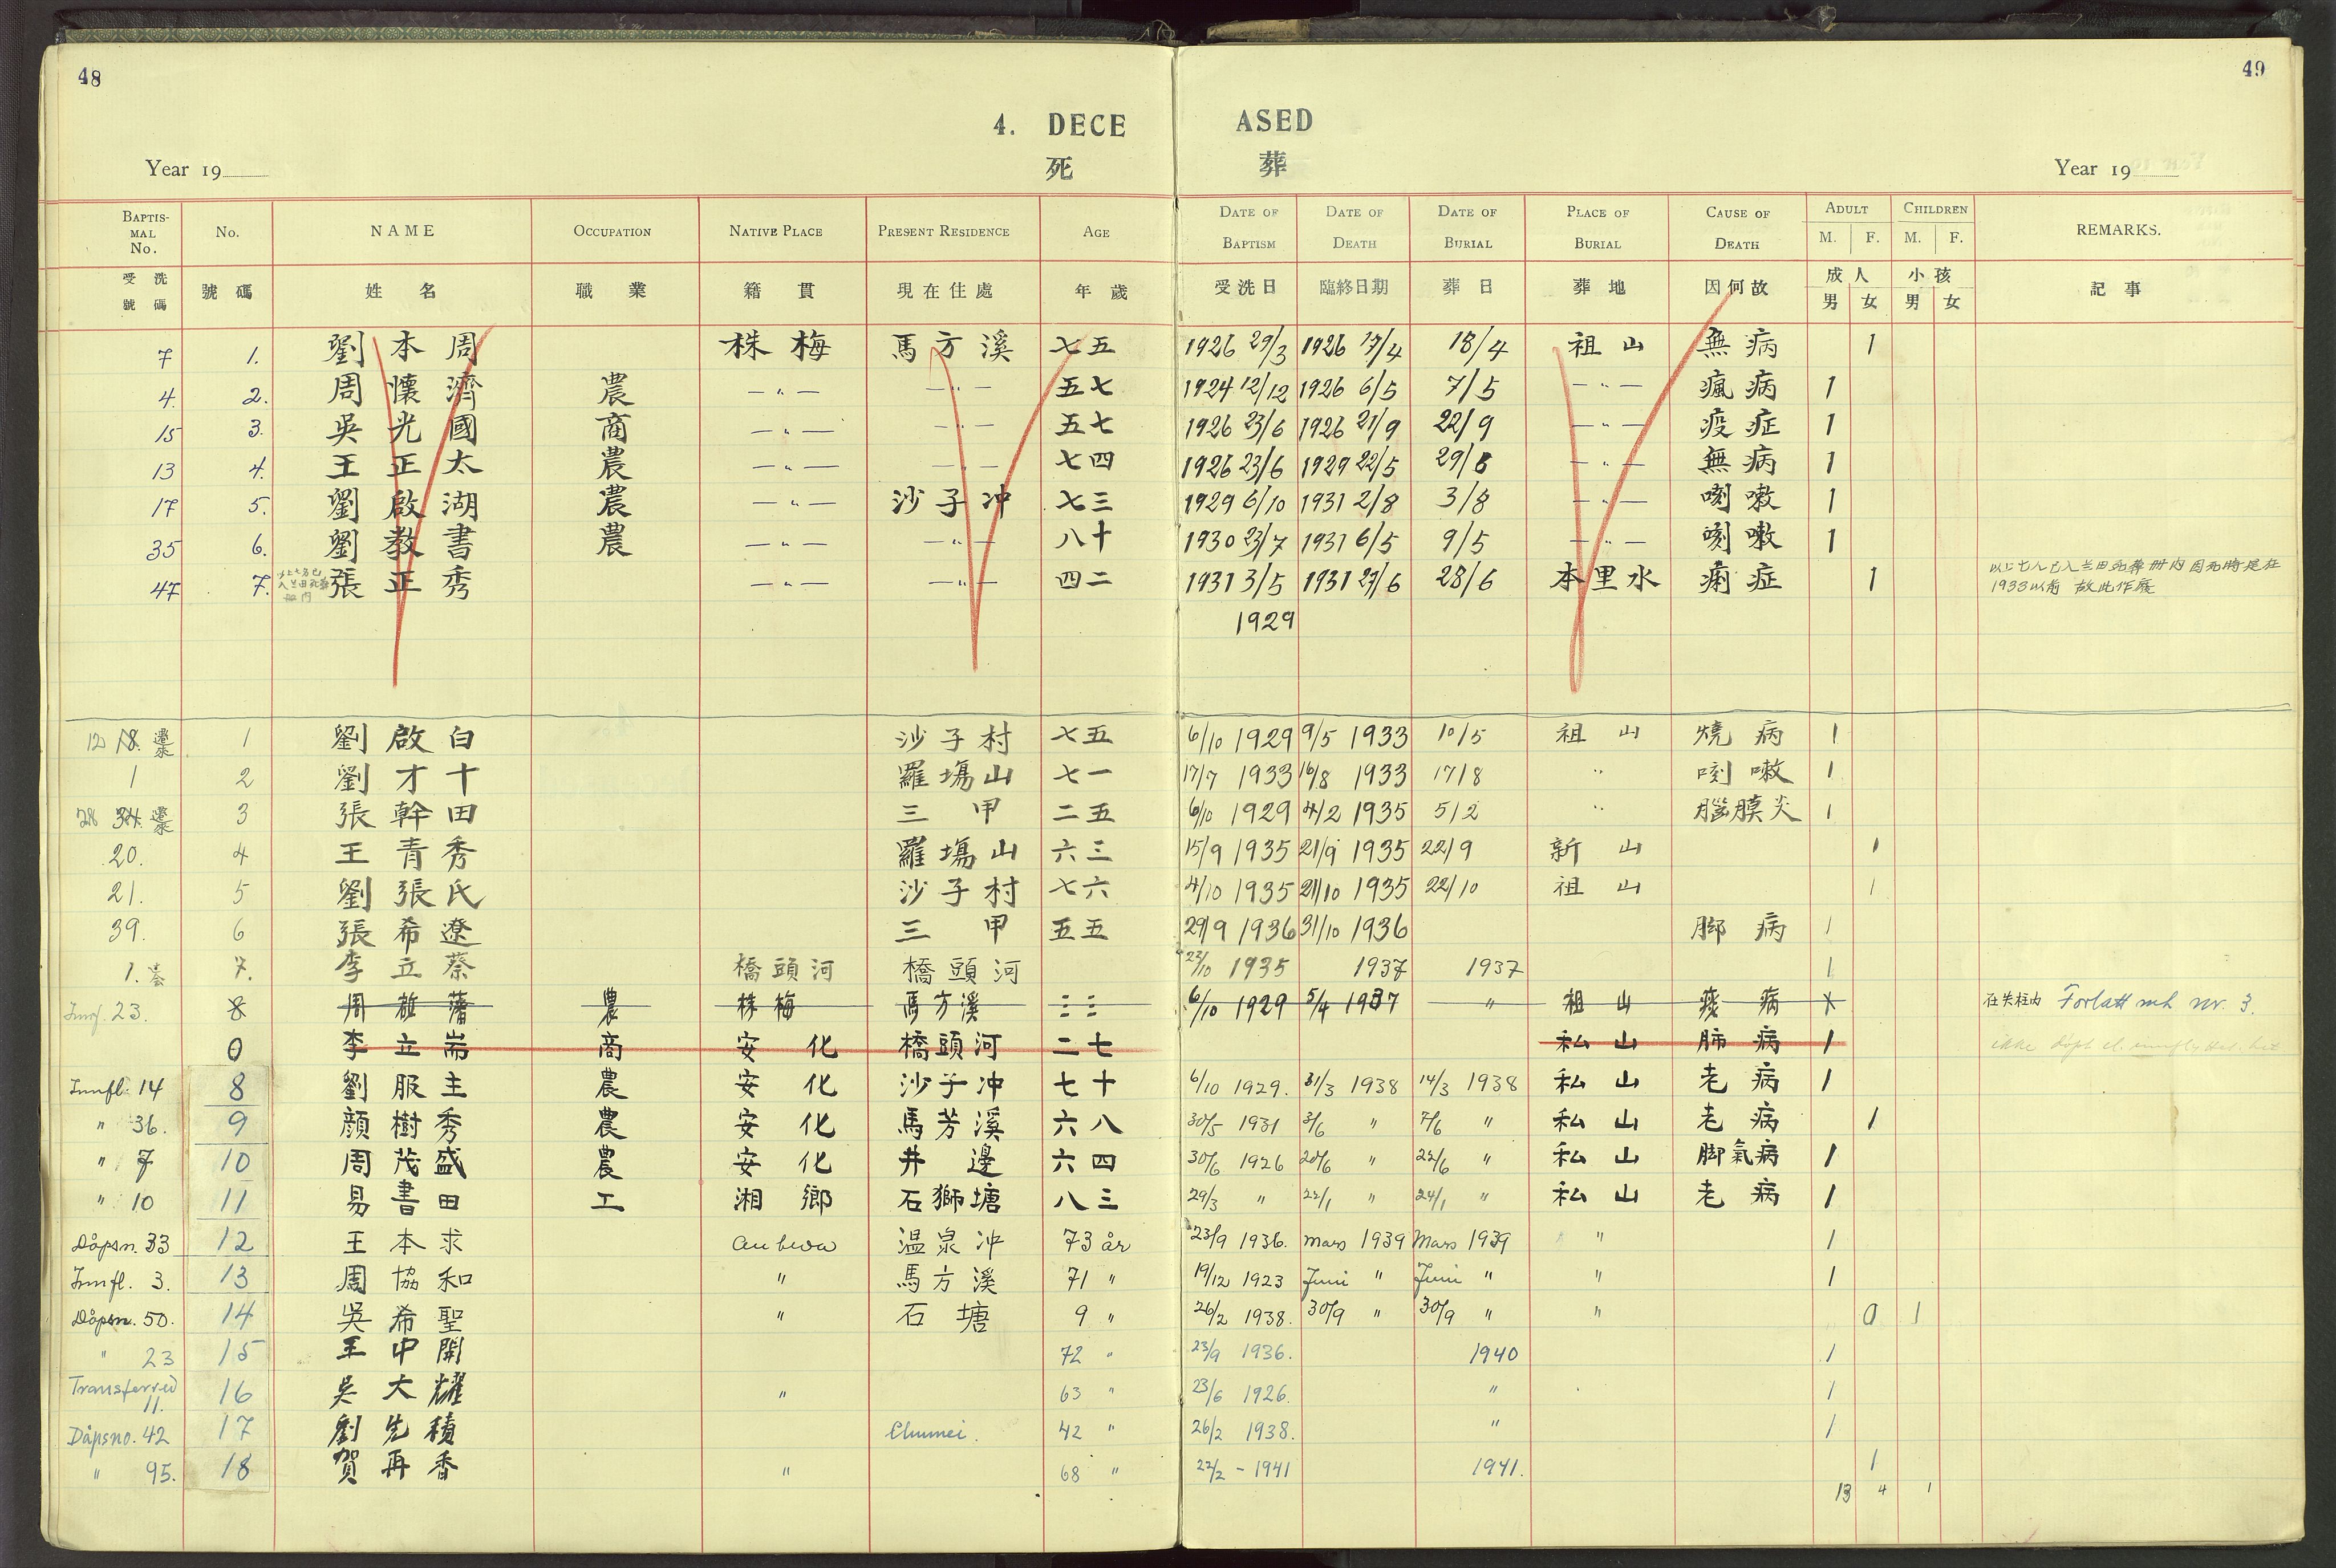 48
49
4. DECEASED
死 葬
Year 19
Year 19
BAPTISMAL No. No. NAME OCCUPATION NATIVE PLACE PRESENT RESIDENCE AGE DATE OF BAPTISM DATE OF DEATH DATE OF BURIAL PLACE OF BURIAL CAUSE OF DEATH ADULT M. F. CHILDREN M. F. REMARKS.
受洗號碼 號碼 姓名 職業 籍貫 現在住處 年歲 受洗日 臨終日期 葬日 葬地 因何故 成人 男 女 小孩 男 女 記事
7 1. 劉本周 株梅 馬方溪 七五 1926 29/3 1926 17/4 18/4 祖山 無病 1
4. 2. 周懷濟 農 —"— —"— 五七 1924 12/12 1926 6/5 7/5 —"— 瘋病 1
15 3. 吳光國 商 —"— —"— 五七 1926 23/6 1926 21/9 22/9 —"— 疫症 1
13 4. 王正太 農 —"— —"— 七四 1926 23/6 1929 22/5 29/5 —"— 無病 1
17 5. 劉啟湖 農 —"— 沙子冲 七三 1929 6/10 1931 2/8 3/8 —"— 咳嗽 1
35 6. 劉教書 農 —"— —"— 八十 1930 23/7 1931 6/5 9/5 —"— 咳嗽 1
47 7. 張正秀 —"— —"— 四二 1931 3/5 1931 27/6 28/6 本里水 痢症 1 以上七人已入兰田死葬册内因死時是在
1933以前 故此作廢
1929
12 18. 1 劉啟白 沙子村 七五 6/10 1929 9/5 1933 10/5 祖山 燒病 1
1 2 劉才十 羅塲山 七一 17/7 1933 16/8 1933 17/8 " 咳嗽 1
28 34. 3 張幹田 三甲 二五 6/10 1929 4/2 1935 5/2 " 腦膜炎 1
20. 4 王青秀 羅塲山 六三 15/9 1935 21/9 1935 22/9 新山 1
21. 5 劉張氏 沙子村 七六 4/10 1935 21/10 1935 22/10 祖山 1
39. 6 張希遼 三甲 五五 29/9 1936 31/10 1936 脚病 1
1. 7. 李立蔡 橋頭河 橋頭河 23/10 1935 1937 1937 1
Innf. 23. 8 周雄藩 農 株梅 馬方溪 三三 6/10 1929 5/4 1937 " 祖山 痰病 1 在失柱内 Forlatt mh nr. 3.
0 李立耑 商 安化 橋頭河 二七 私山 肺病 1
Innfl. 14 8 劉服主 農 安化 沙子冲 七十 6/10 1929. 31/3 1938 14/3 1938 私山 老病 1
" 36. 9 顔樹秀 農 安化 馬芳溪 六八 30/5 1931 3/6 " 7/6 " 私山 老病 1
" 7 10 周茂盛 農 安化 井邊 六四 30/6 1926 20/6 " 22/6 " 私山 脚氣病 1
" 10 11 易書田 工 湘鄉 石獅塘 八三 29/3 " 22/1 " 24/1 " 私山 老病 1
Dåpsn. 33 12 王本求 Anhwa 温泉冲 73 år 23/9 1936. Mars 1939 Mars 1939 " 1
Innfl. 3. 13 周協和 " 馬方溪 71 " 19/12 1923 Juni " Juni " " 1
Dåpsn. 50. 14 吳希聖 " 石塘 9 " 26/2 1938. 30/9 " 30/9 " " 0 1
" 23 15 王中開 72 " 23/9 1936. 1940 1
Transferred 11. 16 吳大耀 " 63 " 23/6 1926. " 1
Dåpsno. 42 17 劉先積 Chumei. 42 " 26/2 1938. " 1
" 95. 18 賀再香 " 68 " 22/2 - 1941 1941. 1
13 4 1